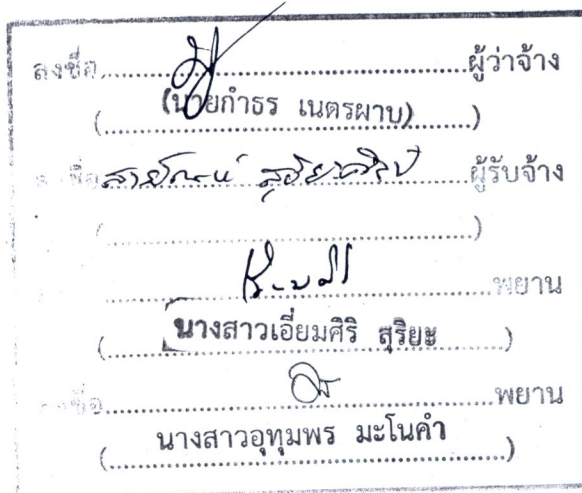 ลงชื่อ..............................ผู้ว่าจ้าง
(นายกำธร เนตรผาบ)
(..............................)
ลงชื่อ สายัณห์ ..............................ผู้รับจ้าง
(..............................)
..............................พยาน
นางสาวเอี่ยมศิริ สุริยะ
(..............................)
ลงชื่อ..............................พยาน
นางสาวอุทุมพร มะโนคำ
(..............................)